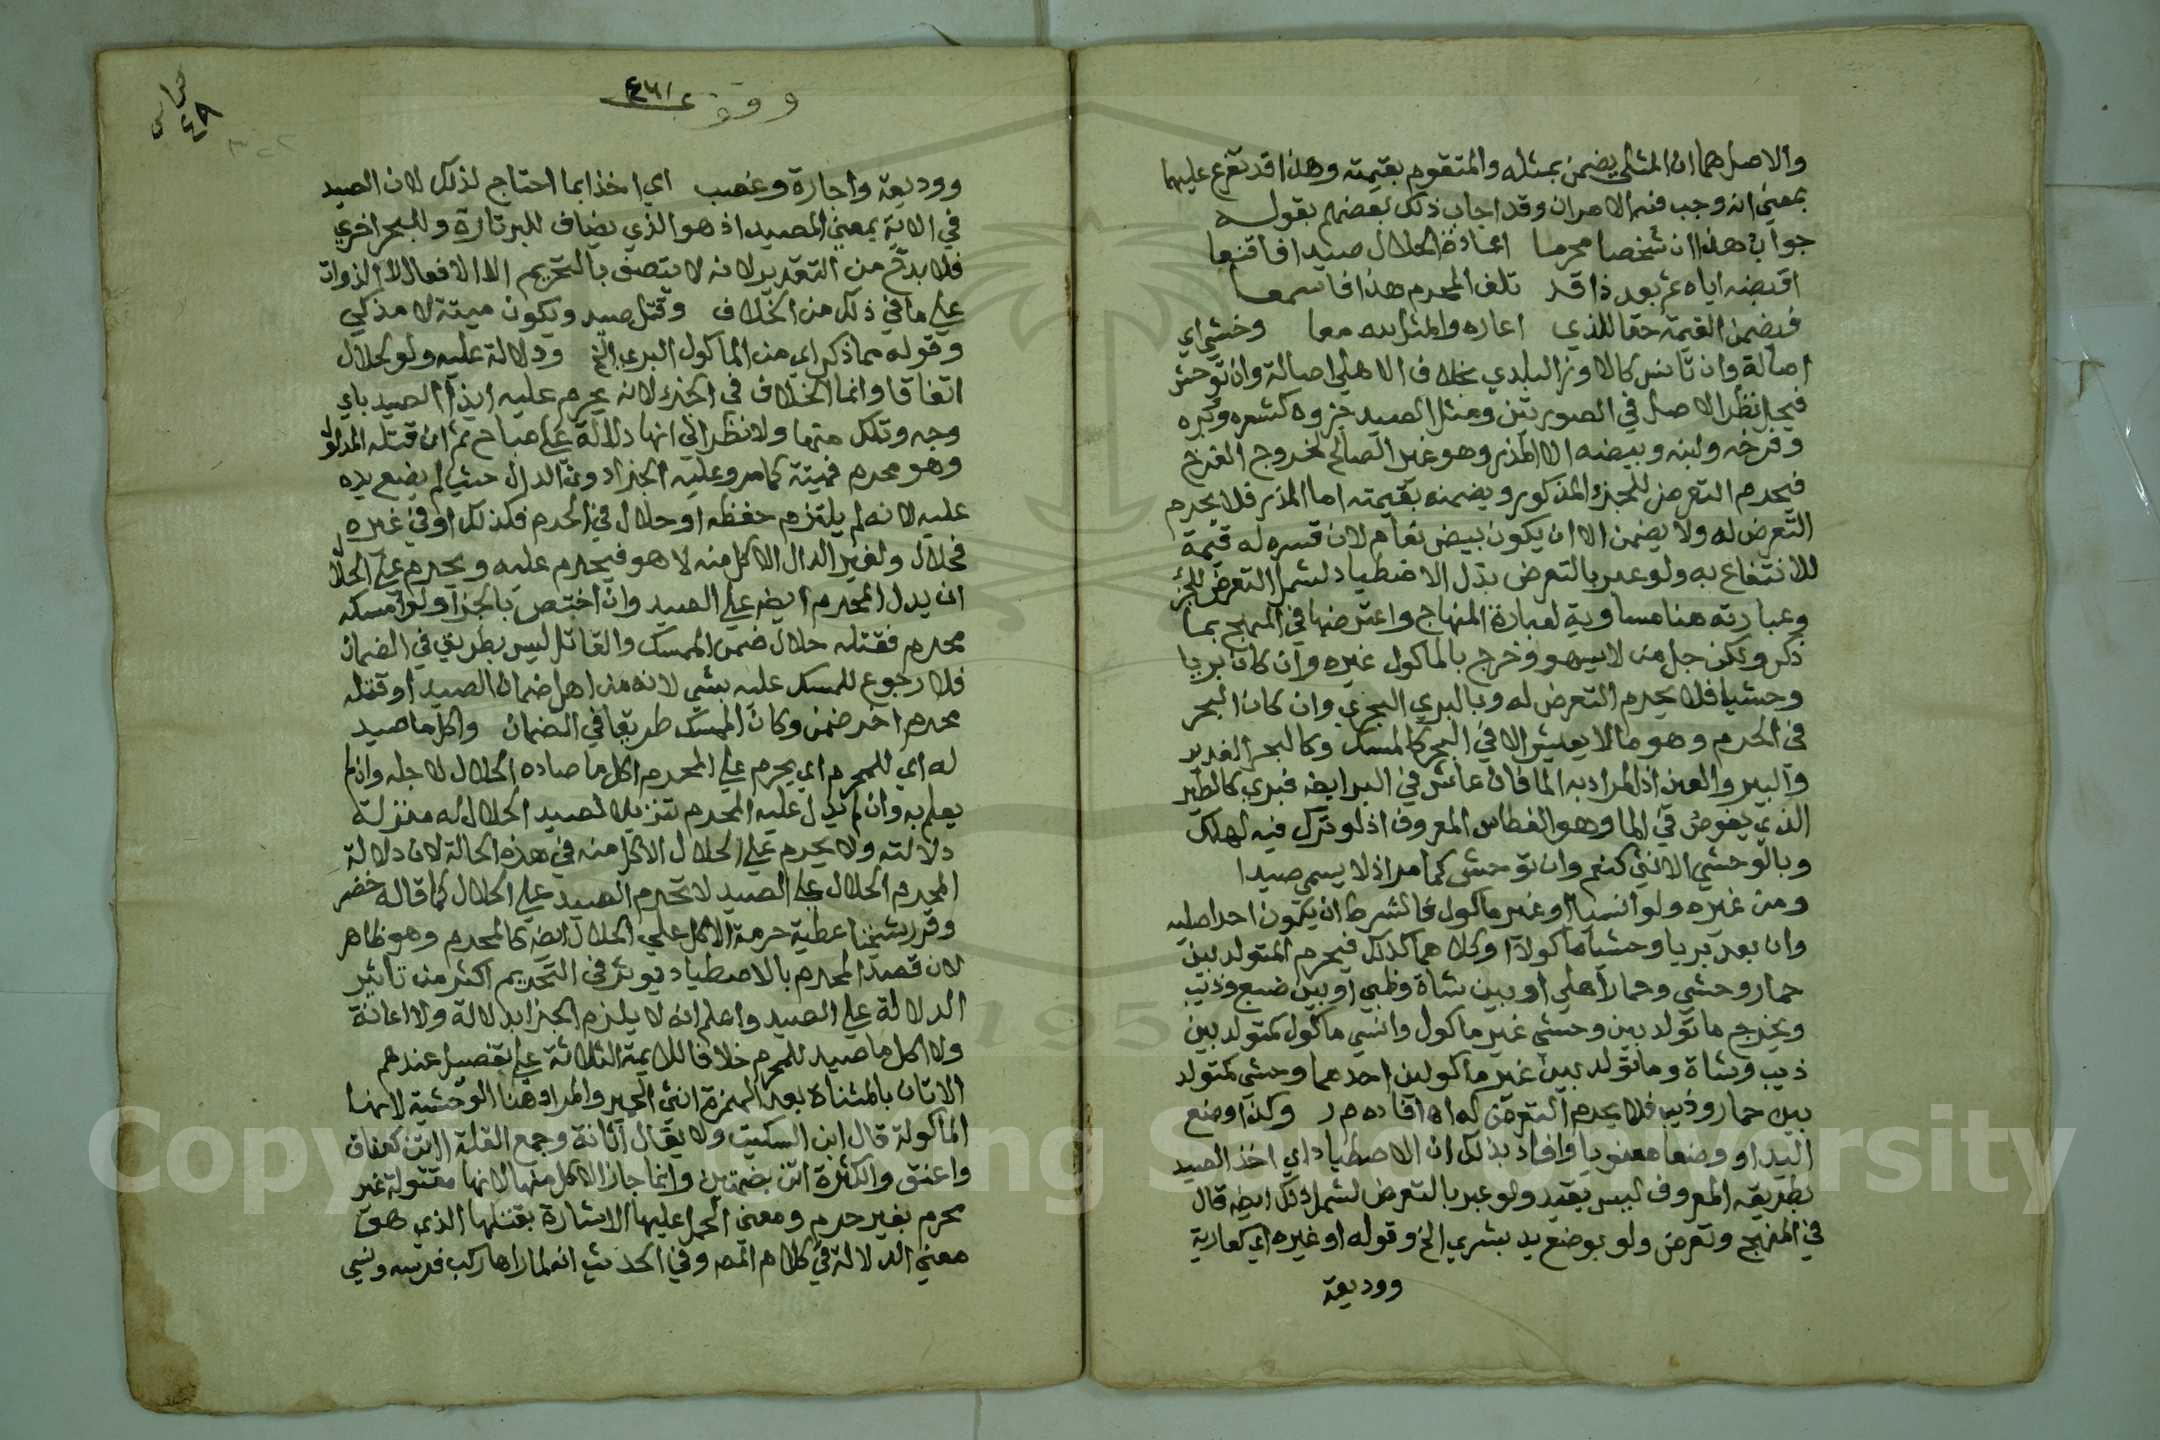 والاصل هما ان المثلي يضمن بمثله والمتقوم بقيمته وهذا قد تفرع عليهما
بمعنى انه وجب فيه الامران وقد اجاب ذلك بعضهم بقوله
جواب هذا ان شخصا محرما اعاده الحلال صيدا فاقنعا
اقبضه اياه ثم بعد ذا قد تلف المحرم هذا فاسمعا
فيضمن القيمة حقا للذي اعاره والمثل لله معا وخشي اي
اصالة وان تانس كالاوز البلدي بخلاف الاهلي اصالة وان توحش
فيحل نظرا لاصل في الصورتين ومثل الصيد جزوه كشعره وبره
وفرخه ولبنه وبيضه الا المذر وهو غير الصالح لخروج الفرخ
فيحرم التعرض للجزء المذكور ويضمنه بقيمته اما المذر فلا يحرم
التعرض له ولا يضمن الا ان يكون بيض نعام لان قشره له قيمة
للانتفاع به ولو عبر بالتعرض بدل الاصطياد لشمل التعرض للجزء
وعبارته هنا مساوية لعبارة المنهاج واعترضها في المنهج بما
ذكر ولكن جل من لا يسهو وخرج بالماكول غيره وان كان بريا
وحشيا فلا يحرم التعرض له وبالبري البحري وان كان البحر
في الحرم وهو مالا يعيش الا في البحر كالمسك وكالبحر الغدير
والبير والعين اذ المراد به الما فان عاش في البر ايضا فبري كالطير
الذي يغوص في الما وهو الغطاس المعروف اذ لو ترك فيه لهلك
وبالوحشي الانسي كنعم وان توحش كما مر اذ لا يسمى صيدا
ومن غيره ولو انسيا او غير ماكول فالشرط ان يكون احد اصليه
وان بعد بريا وحشيا ماكولا او كلاهما كذلك فيحرم المتولد بين
حمار وحشي وحمار اهلي او بين شاة وظبي او بين ضبع وذيب
ويخرج ما تولد بين وحشي غير ماكول وانسي ماكول كمتولد بين
ذيب وشاة وما تولد بين غير ماكولين احدهما وحشي كمتولد
بين حمار وذيب فلا يحرم التعرض له اه افاده م ر وكذا وضع
اليد او وضعا معنويا وافاد بذلك ان الاصطياد اي اخذ الصيد
بطريقه المعروف ليس بقيد ولو عبر بالتعرض لشمل ذلك ايضا قال
في المنهج وتعرض ولو بوضع يد بشري الخ وقوله او غيره اي كعارية
ووديعة
وقف
٤٦١
كراس
٤٨
ووديعة واجارة وغصب اي اخذا بما احتاج لذلك لان الصيد
في الاية بمعنى المصيد اذ هو الذي يضاف للبر تارة وللبحر اخرى
فلا بد من التقدير لانه لا يتصف بالتحريم الا الافعال لا الذوات
على ما في ذلك من الخلاف وقتل صيد ويكون ميتة لا مذكى
وقوله مما ذكر اي من الماكول البري الخ ودلالة عليه ولو لحلال
اتفاقا وانما الخلاف في الجزاء لانه يحرم عليه ايذا الصيد باي
وجه وتلك منها ولا نظر الى انها دلالة على مباح ثم ان قتله المدلول
وهو محرم فميتة كما مر وعليه الجزا دون الدال حيث لم يضع يده
عليه لانه لم يلتزم حفظه او حلال في الحرم فكذلك او في غيره
فحلال ولغير الدال الاكل منه لا هو فيحرم عليه ويحرم على الحلال
ان يدل المحرم ايضا على الصيد وان اختص بالجزا ولو امسكه
محرم فقتله حلال ضمن الممسك والقاتل ليس بطريق في الضمان
فلا رجوع للمسك عليه بشي لانه من اهل ضمان الصيد او قتله
محرم اخر ضمن وكان الممسك طريقا في الضمان واكل ما صيد
له اي للمحرم اي يحرم على المحرم اكل ما صاده الحلال لاجله وان لم
يعلم به وان لم يدل عليه المحرم تنزيلا لصيد الحلال له منزلة
دلالته ولا يحرم على الحلال الاكل منه في هذه الحالة لان دلالة
المحرم الحلال على الصيد لا تحرم الصيد على الحلال كما قاله خضر
وقرر شيخنا عطية حرمة الاكل على الحلال ايضا كالمحرم وهو ظاهر
لان قصد المحرم بالاصطياد يوثر في التحريم اكثر من تاثير
الدلالة على الصيد واعلم انه لا يلزم الجزا بدلالة ولا اعانة
ولا اكل ما صيد للمحرم خلافا للايمة الثلاثة على تفصيل عندهم
الاتان بالمثناة بعد الهمزة انثى الحمير والمراد هنا الوحشية لانها
الماكولة قال ابن السكيت ولا يقال اتانة وجمع القلة ااتن كعناق
واعنق والكثرة اتن بضمتين وانما جاز الاكل منها لانها مقتولة غير
محرم بغير حرم ومعنى الحمل عليها الاشارة بقتلها الذي هو
معنى الدلالة في كلام المص وفي الحديث انه لما راها ركب فرسه ونسي
Copyright © King Saud University
1957